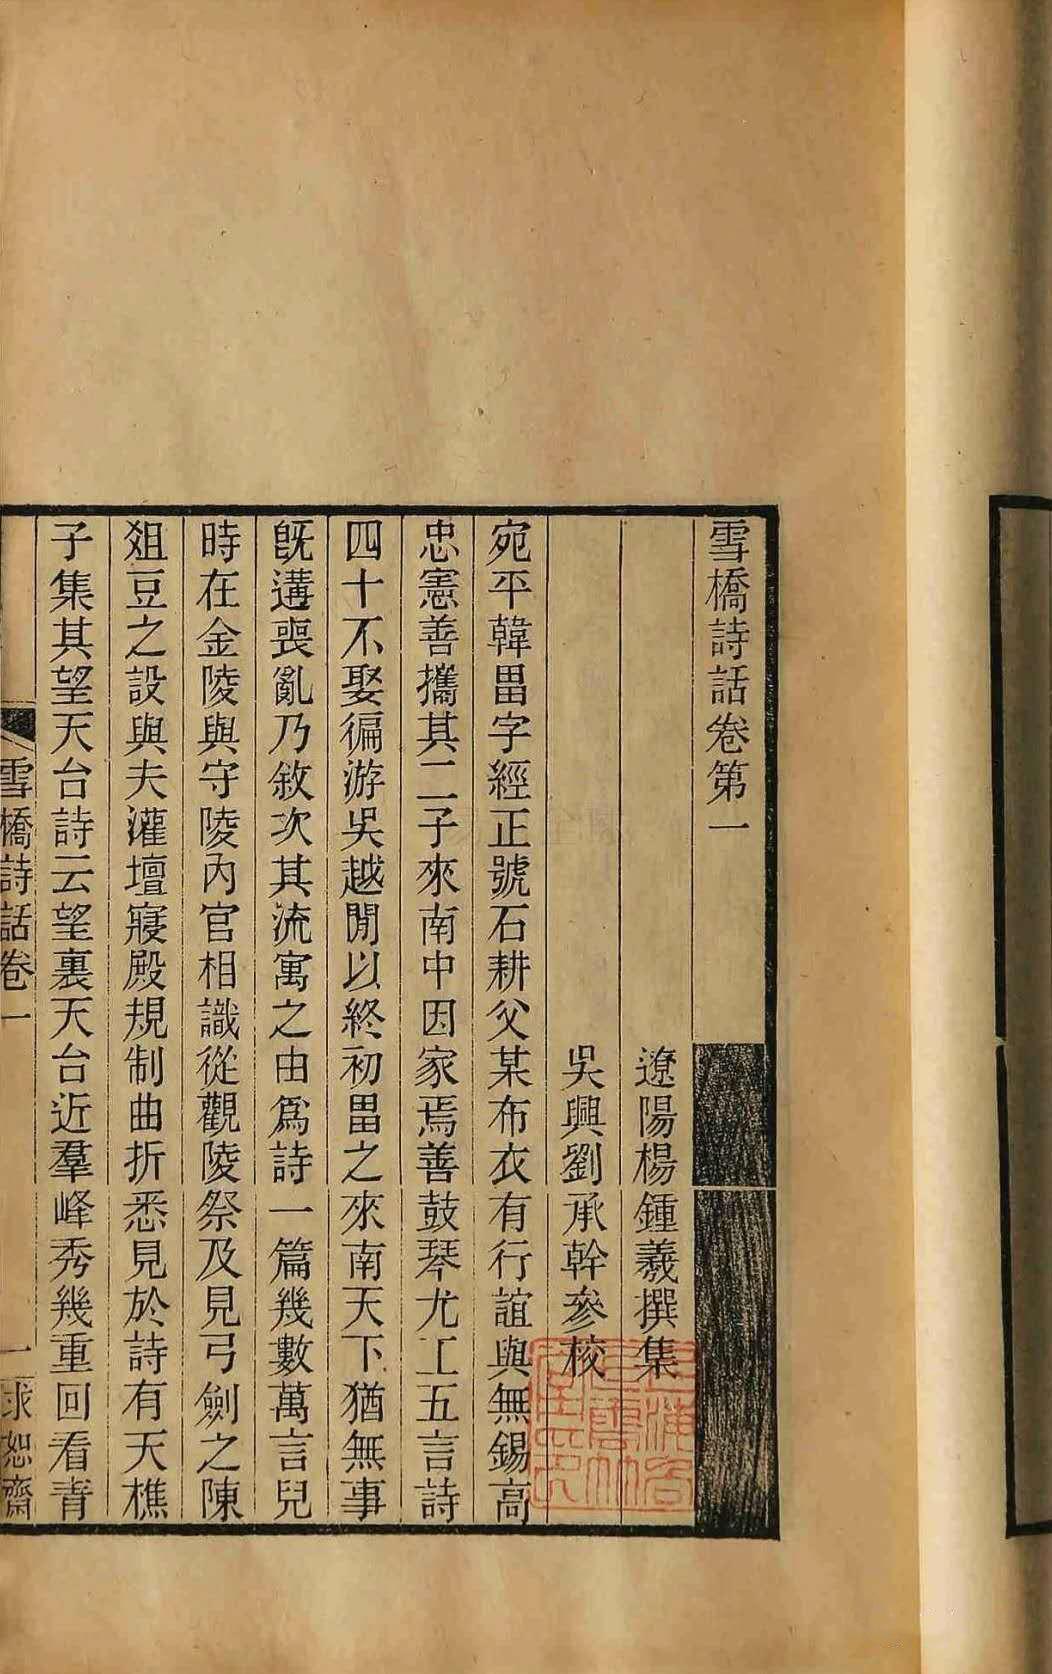 雪橋詩話卷第一
遼陽楊鍾羲撰集
吳興劉承幹參校
宛平韓畕字經正號石耕父某布衣有行誼與無錫高
忠憲善攜其二子來南中因家焉善鼓琴尤工五言詩
四十不娶徧游吳越閒以終初畕之來南天下猶無事
旣遘喪亂乃敘次其流寓之由爲詩一篇幾數萬言兒
時在金陵與守陵內官相識從觀陵祭及見弓劍之陳
俎豆之設與夫灌壇寢殿規制曲折悉見於詩有天樵
子集其望天台詩云望裏天台近羣峰秀幾重回看青
雪橋詩話卷一
一
求恕齋